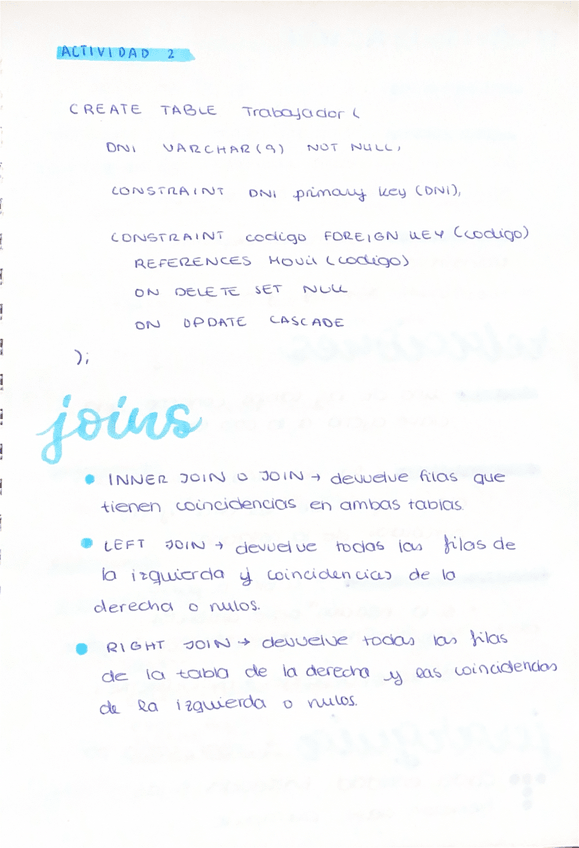 ACTIVIDAD 2
CREATE TABLE Trabajador (
DNI VARCHAR(9) NOT NULL,
CONSTRAINT DNI primary key (DNI),
CONSTRAINT codigo FOREIGN KEY (codigo)
REFERENCES Movil (codigo)
ON DELETE SET NULL
ON UPDATE CASCADE
);
joins
• INNER JOIN O JOIN → devuelve filas que
tienen coincidencias en ambas tablas.
• LEFT JOIN → devuelve todas las filas de
la izquierda y coincidencias de la
derecha o nulos.
• RIGHT JOIN → devuelve todas las filas
de la tabla de la derecha y las coincidencias
de la izquierda o nulos.